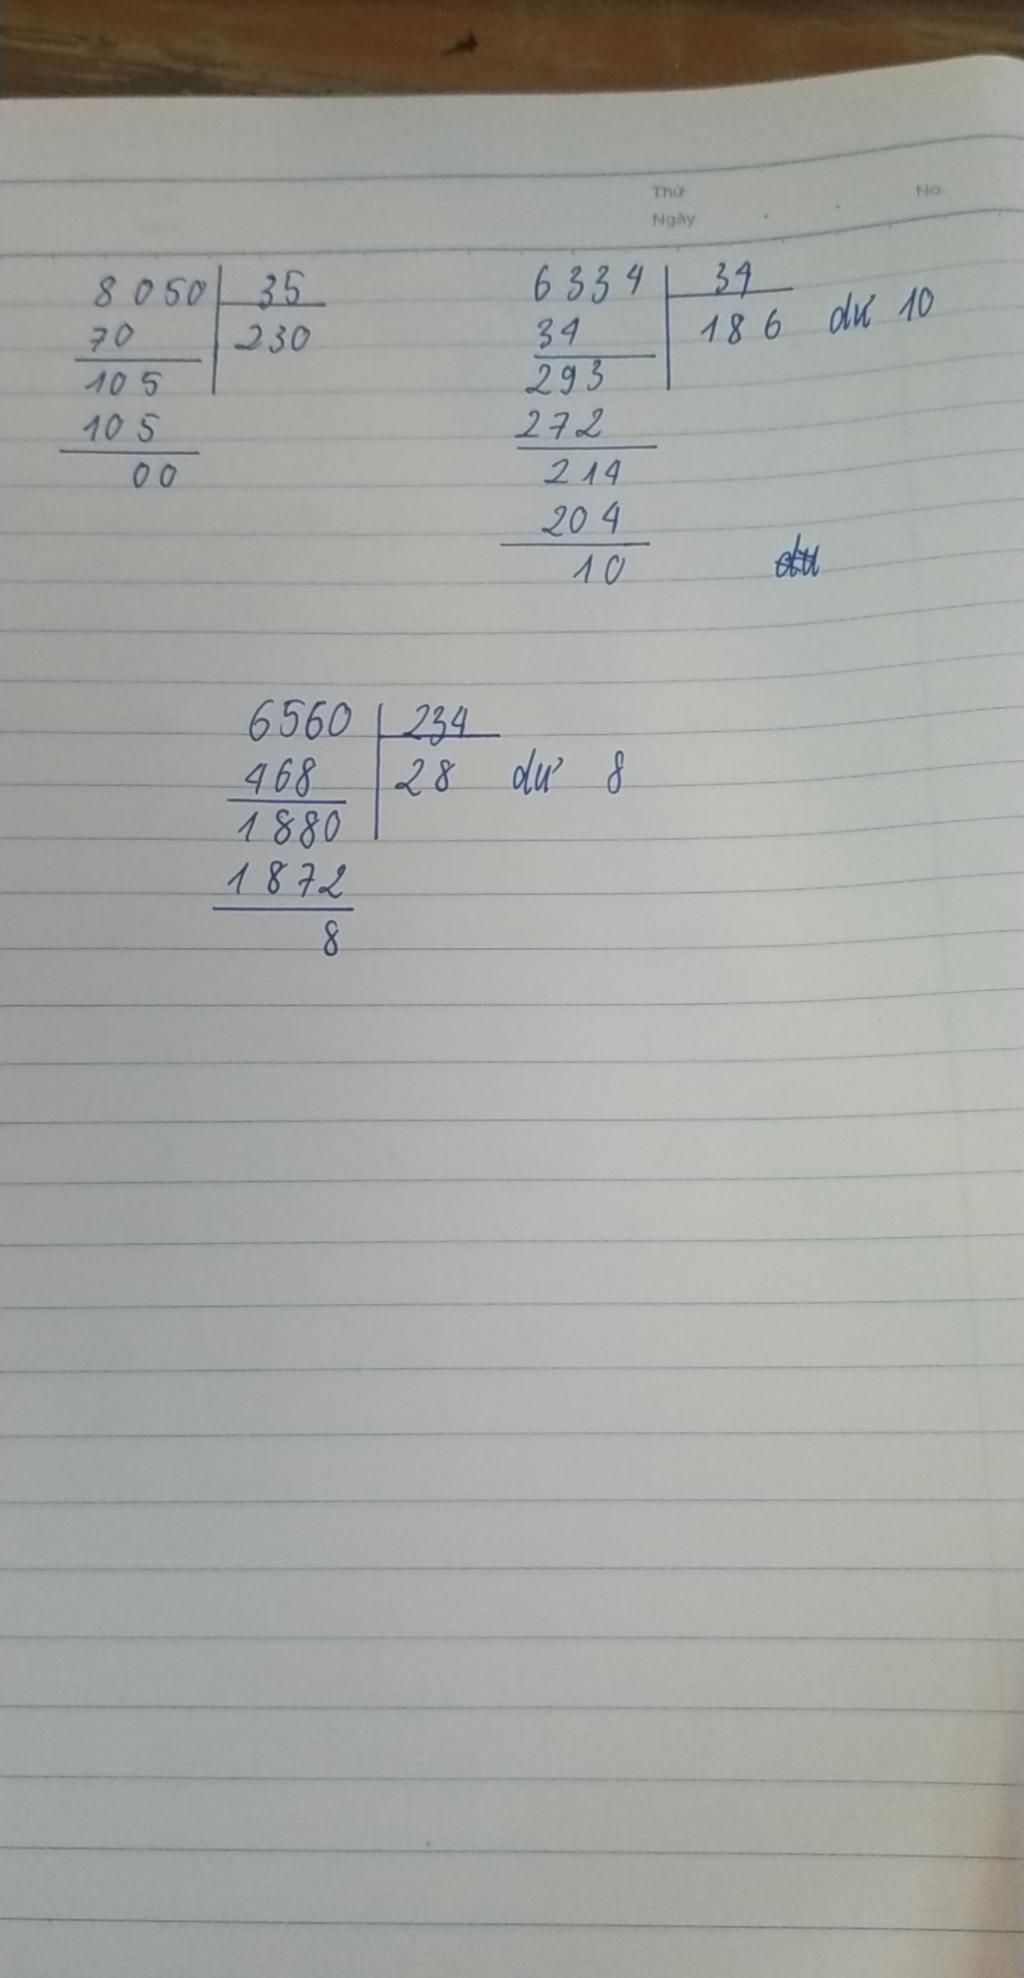 Thứ No.
Ngày
8050 35
70 230
105
105
00
6334 34
34 186 dư 10
293
272
214
204
10
6560 234
468 28 dư 8
1880
1872
8